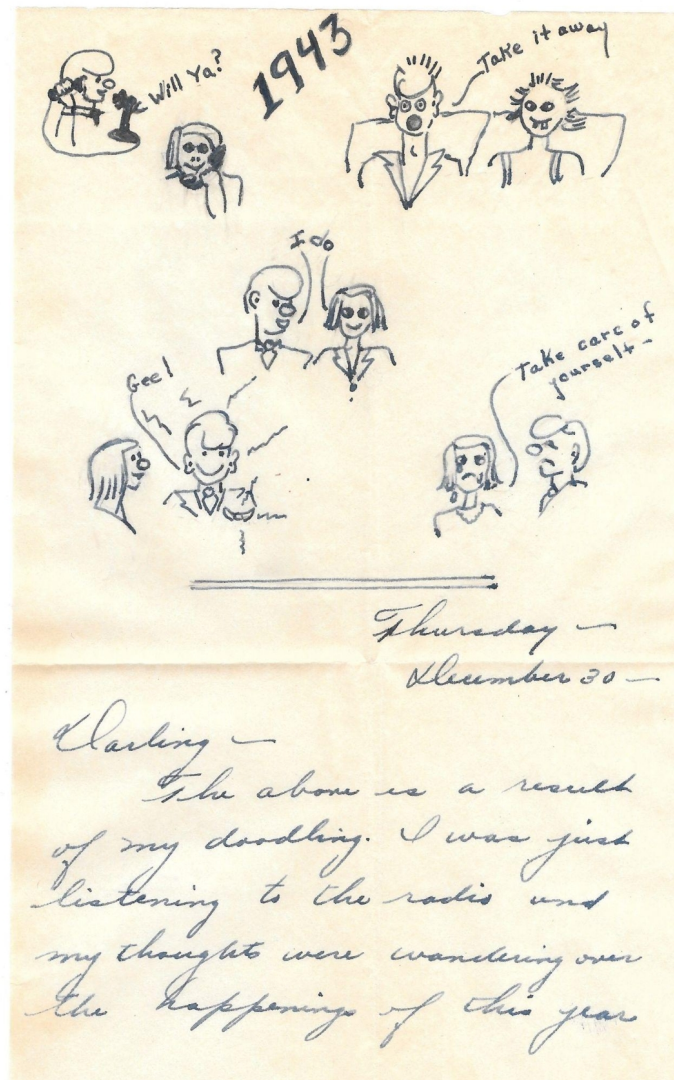 1943
Will Ya?
Take it away
I do
Gee!
Take care of
yourself-
Thursday –
December 30 –
Darling –
The above is a result
of my doodling. I was just
listening to the radio and
my thoughts were wandering over
the happenings of this year